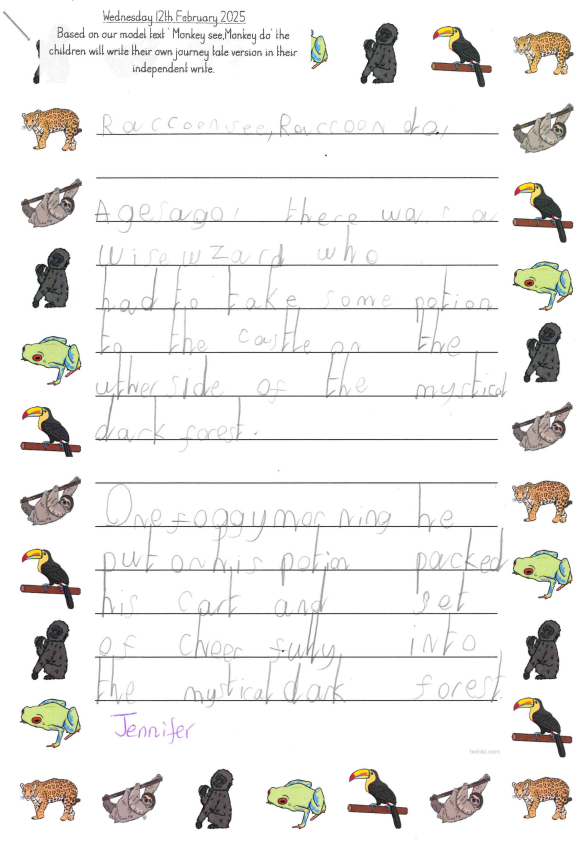 Wednesday 12th February 2025
Based on our model text ' Monkey see,Monkey do' the
children will write their own journey tale version in their
independent write.
Raccoon see, Raccoon do,
Agesago, there was a
Wise wzard who
had to take some potion
to the castle on the
uther side of the mystical
dark forest.
One foggy morning he
put on his potion packed
his cart and set
of cheerfully, into
the mystical dark forest
Jennifer
twinkl.com